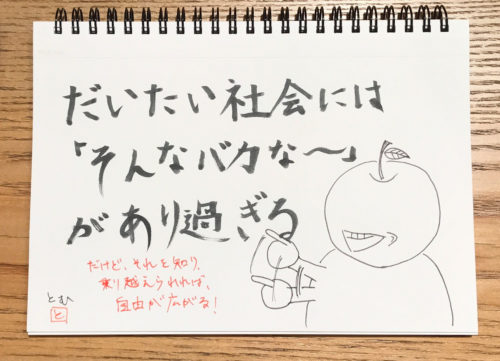 だいたい社会には
「そんなバカな〜」
があり過ぎる
だけど、それを知り、
乗り越えられれば、
自由が広がる!
とむ
と